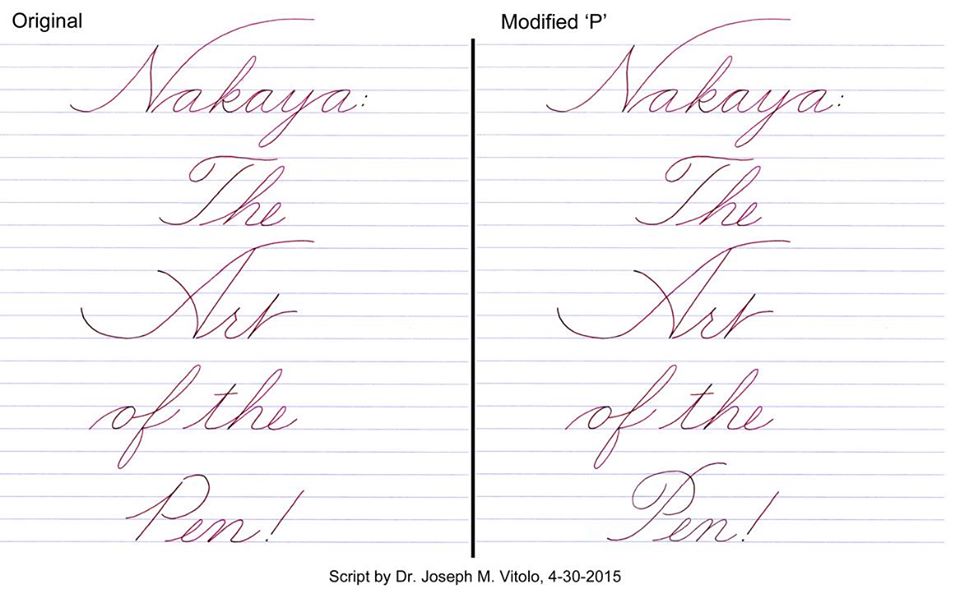 Original
Nakaya:
The
Art
of the
Pen!
Modified ‘P’
Nakaya:
The
Art
of the
Pen!
Script by Dr. Joseph M. Vitolo, 4-30-2015